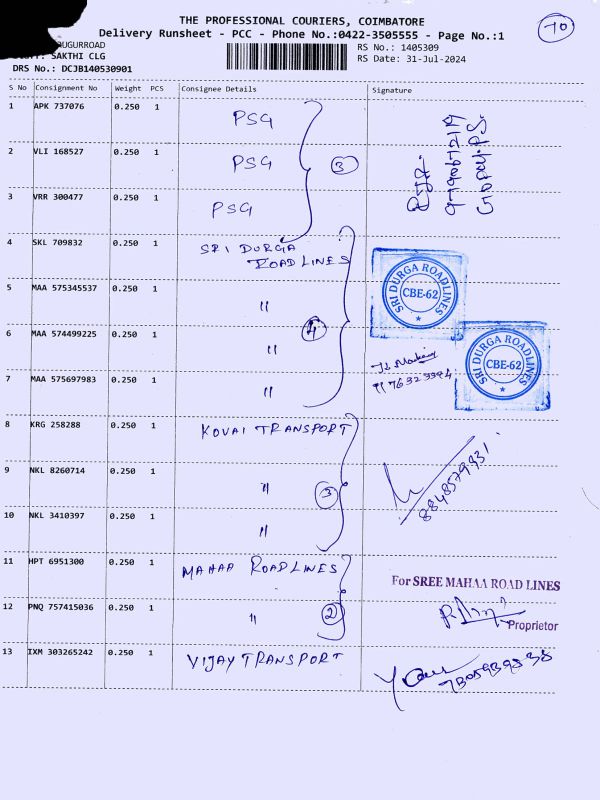 THE PROFESSIONAL COURIERS, COIMBATORE
Delivery Runsheet - PCC - Phone No.:0422-3505555 - Page No.:1
70
UGURROAD
SAKTHI CLG
DRS No.: DCJB140530901
RS No.: 1405309
RS Date: 31-Jul-2024
S No Consignment No Weight PCS Consignee Details Signature
1 APK 737076 0.250 1 PSG
2 VLI 168527 0.250 1 PSG
3 VRR 300477 0.250 1 PSG
3
4 SKL 709832 0.250 1 SRI DURGA
ROADLINES
5 MAA 575345537 0.250 1 "
6 MAA 574499225 0.250 1 "
7 MAA 575697983 0.250 1 "
4
SRI DURGA ROADLINES
CBE-62
SRI DURGA ROADLINES
CBE-62
8 KRG 258288 0.250 1 KOVAI TRANSPORT
9 NKL 8260714 0.250 1 "
10 NKL 3410397 0.250 1 "
3
8848579931
11 HPT 6951300 0.250 1 MAHAA ROADLINES
For SREE MAHAA ROAD LINES
12 PNQ 757415036 0.250 1 "
2
Proprietor
13 IXM 303265242 0.250 1 VIJAY TRANSPORT